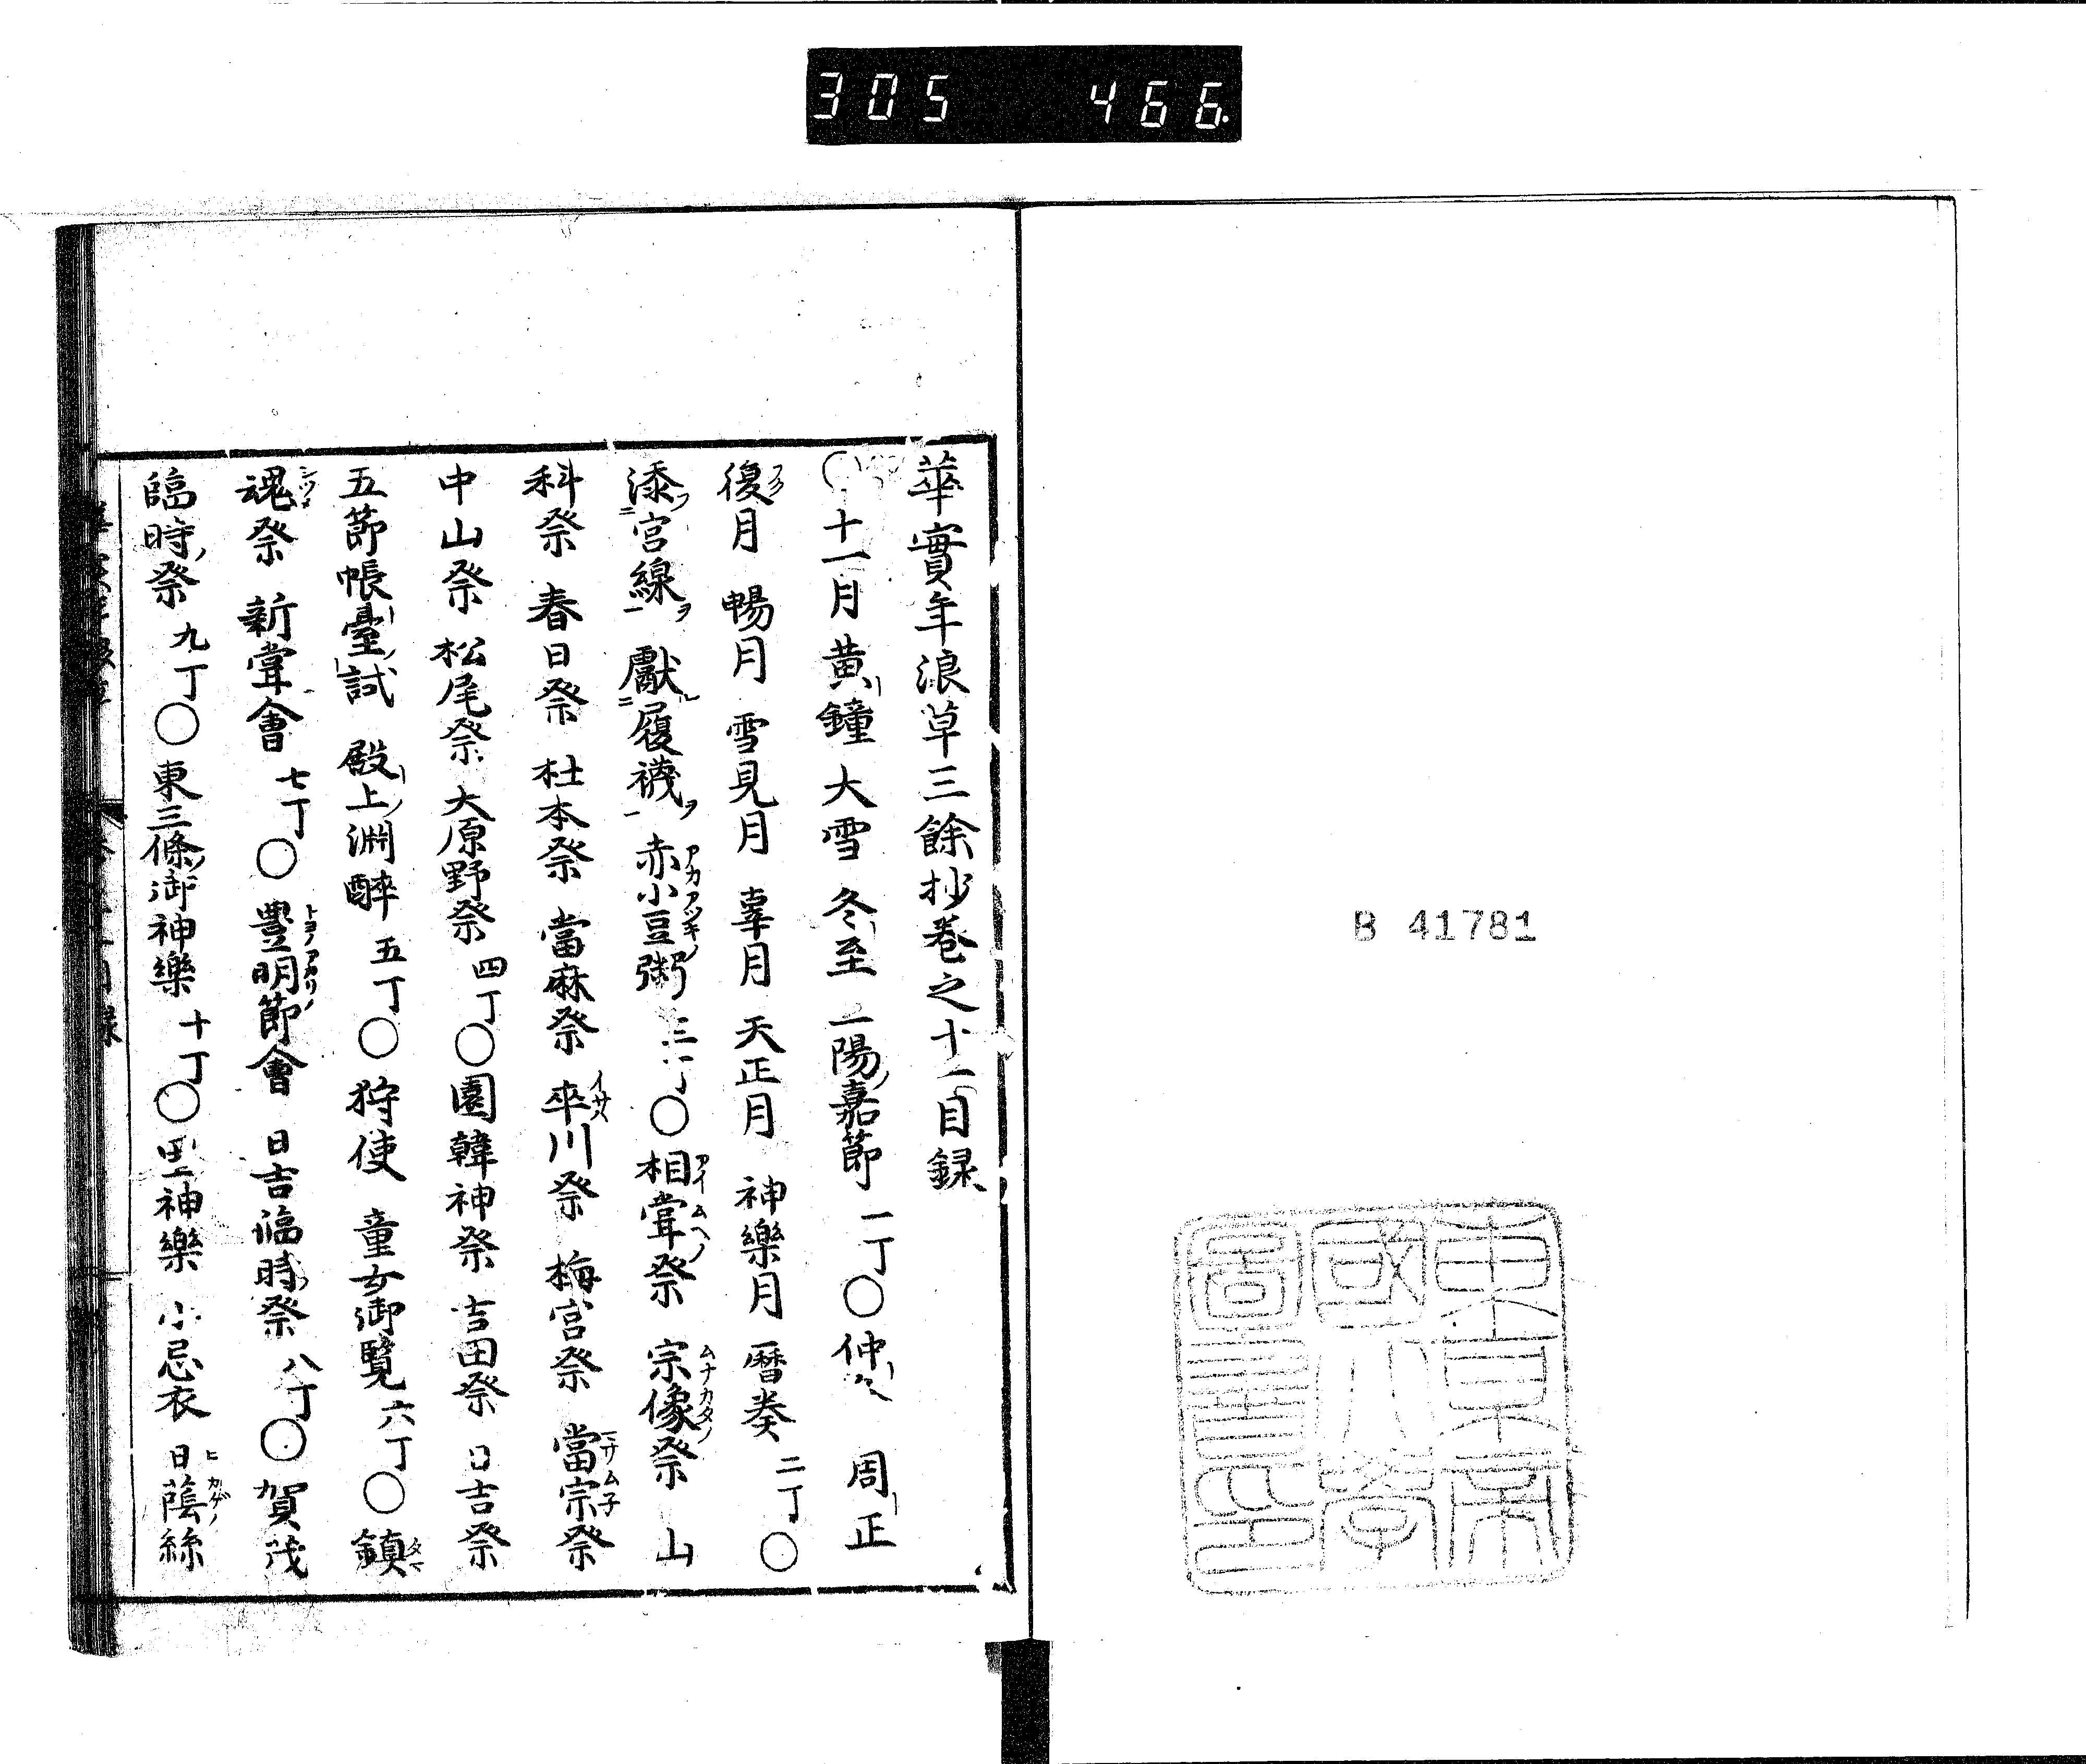 305 466
B 41781
東京帝國大學圖書印
華實年浪草三餘抄巻之十一目録
十一月 黄鐘 大雪 冬至 一陽嘉節 一丁〇仲冬 周正
復月 暢月 雪見月 辜月 天正月 神樂月 暦奏 二丁〇
添宮線 獻履襪 赤小豆粥 三丁〇相甞祭 宗像祭 山
科祭 春日祭 杜本祭 當麻祭 率川祭 梅宮祭 當宗祭
中山祭 松尾祭 大原野祭 四丁〇園韓神祭 吉田祭 日吉祭
五節帳臺試 殿上淵醉 五丁〇狩使 童女御覧 六丁〇鎮
魂祭 新甞會 七丁〇豊明節會 日吉臨時祭 八丁〇賀茂
臨時祭 九丁〇東三條御神樂 十丁〇里神樂 小忌衣 日蔭絲